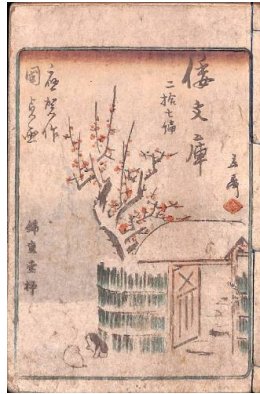 倭文庫
二拾七編
應賀作
國貞画
錦重堂梓